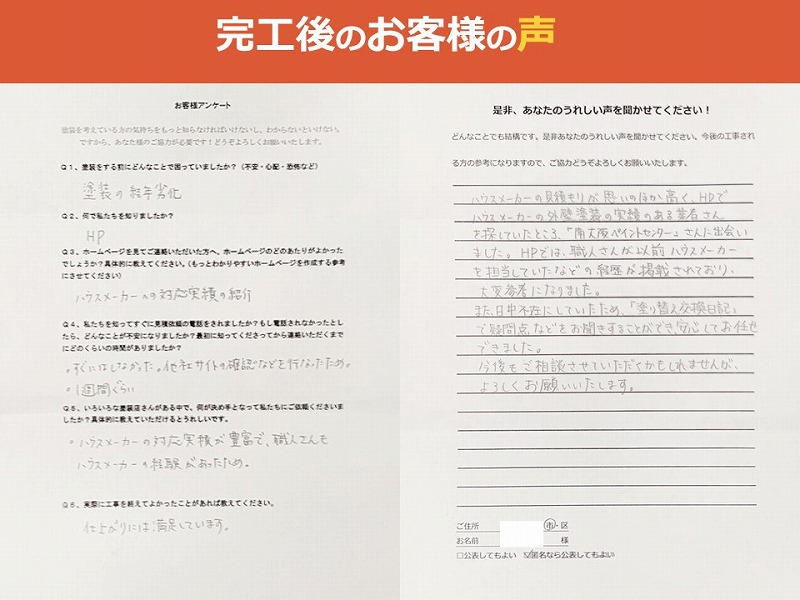 完工後のお客様の声
お客様アンケート
塗装を考えている方の気持ちをもっと知らなければいけないし、わからないといけない。
ですから、あなた様のご協力が必要です！どうぞよろしくお願いいたします。
Q１、塗装をする前にどんなことで困っていましたか？（不安・心配・恐怖など）
塗装の経年劣化
Q２、何で私たちを知りましたか？
HP
Q３、ホームページを見てご連絡いただいた方へ、ホームページのどのあたりがよかった
でしょうか？具体的に教えてください。（もっとわかりやすいホームページを作成する参考
にさせてください）
ハウスメーカーへの対応実績の紹介
Q４、私たちを知ってすぐに見積依頼の電話をされましたか？もし電話されなかったとし
たら、どんなことが不安になりましたか？最初に知ってくださってから連絡いただくまで
にどのくらいの時間がありましたか？
・すぐにはしなかった。他社サイトの確認などを行なったため。
・1週間ぐらい
Q５、いろいろな塗装店さんがある中で、何が決め手となって私たちにご依頼くださいま
したか？具体的に教えていただけるとうれしいです。
・ハウスメーカーの対応実績が豊富で、職人さんも
ハウスメーカーの経験があったため。
Q６、実際に工事を終えてよかったことがあれば教えてください。
仕上がりには満足しています。
是非、あなたのうれしい声を聞かせてください！
どんなことでも結構です。是非あなたのうれしい声を聞かせてください。今後の工事され
る方の参考になりますので、ご協力どうぞよろしくお願いいたします。
ハウスメーカーの見積もりが思いのほか高く、HPで
ハウスメーカーの外壁塗装の実績のある業者さん
を探していたところ、「南大阪ペイントセンター」さんに出会い
ました。HPでは、職人さんが以前ハウスメーカー
を担当していたなどの経歴が掲載されており、
大変参考になりました。
また、日中不在にしていたため、「塗り替え交換日記」
で疑問点などをお聞きすることができ、安心してお任せ
できました。
今後もご相談させていただくかもしれませんが、
よろしくお願いいたします。
ご住所 市・区
お名前 様
□公表してもよい ☑匿名なら公表してもよい